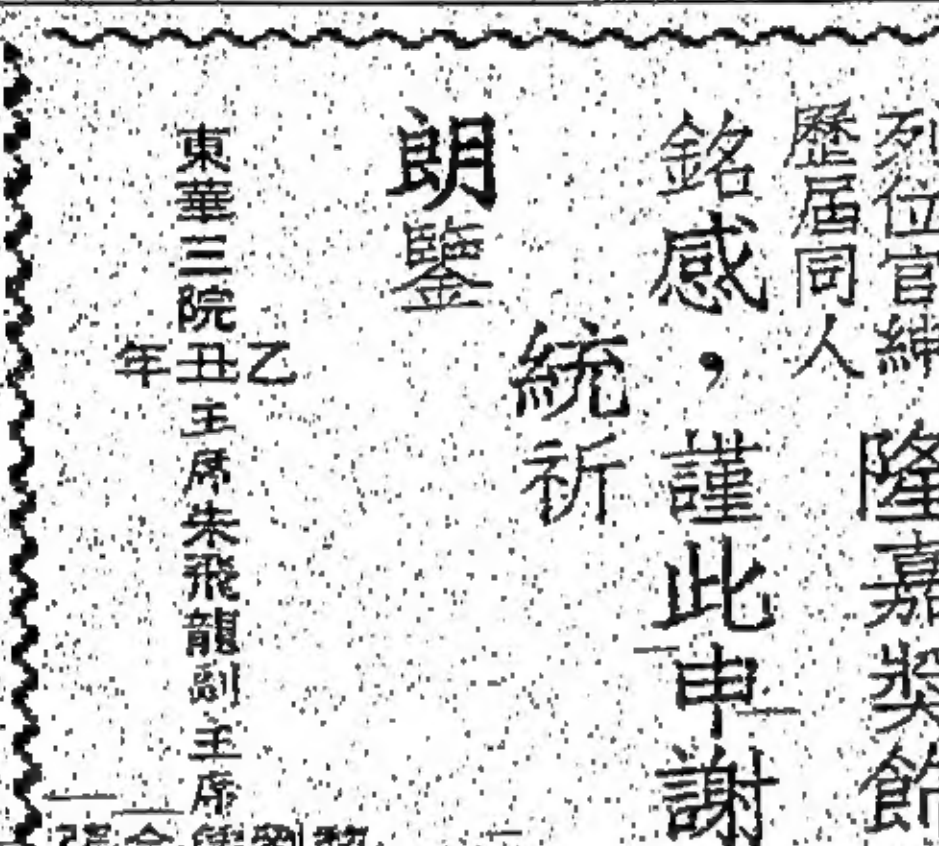 列位官紳
歷屆同人
隆嘉獎飾
銘感，謹此申謝
統祈
朗鑒
東華三院乙丑年主席朱飛龍副主席